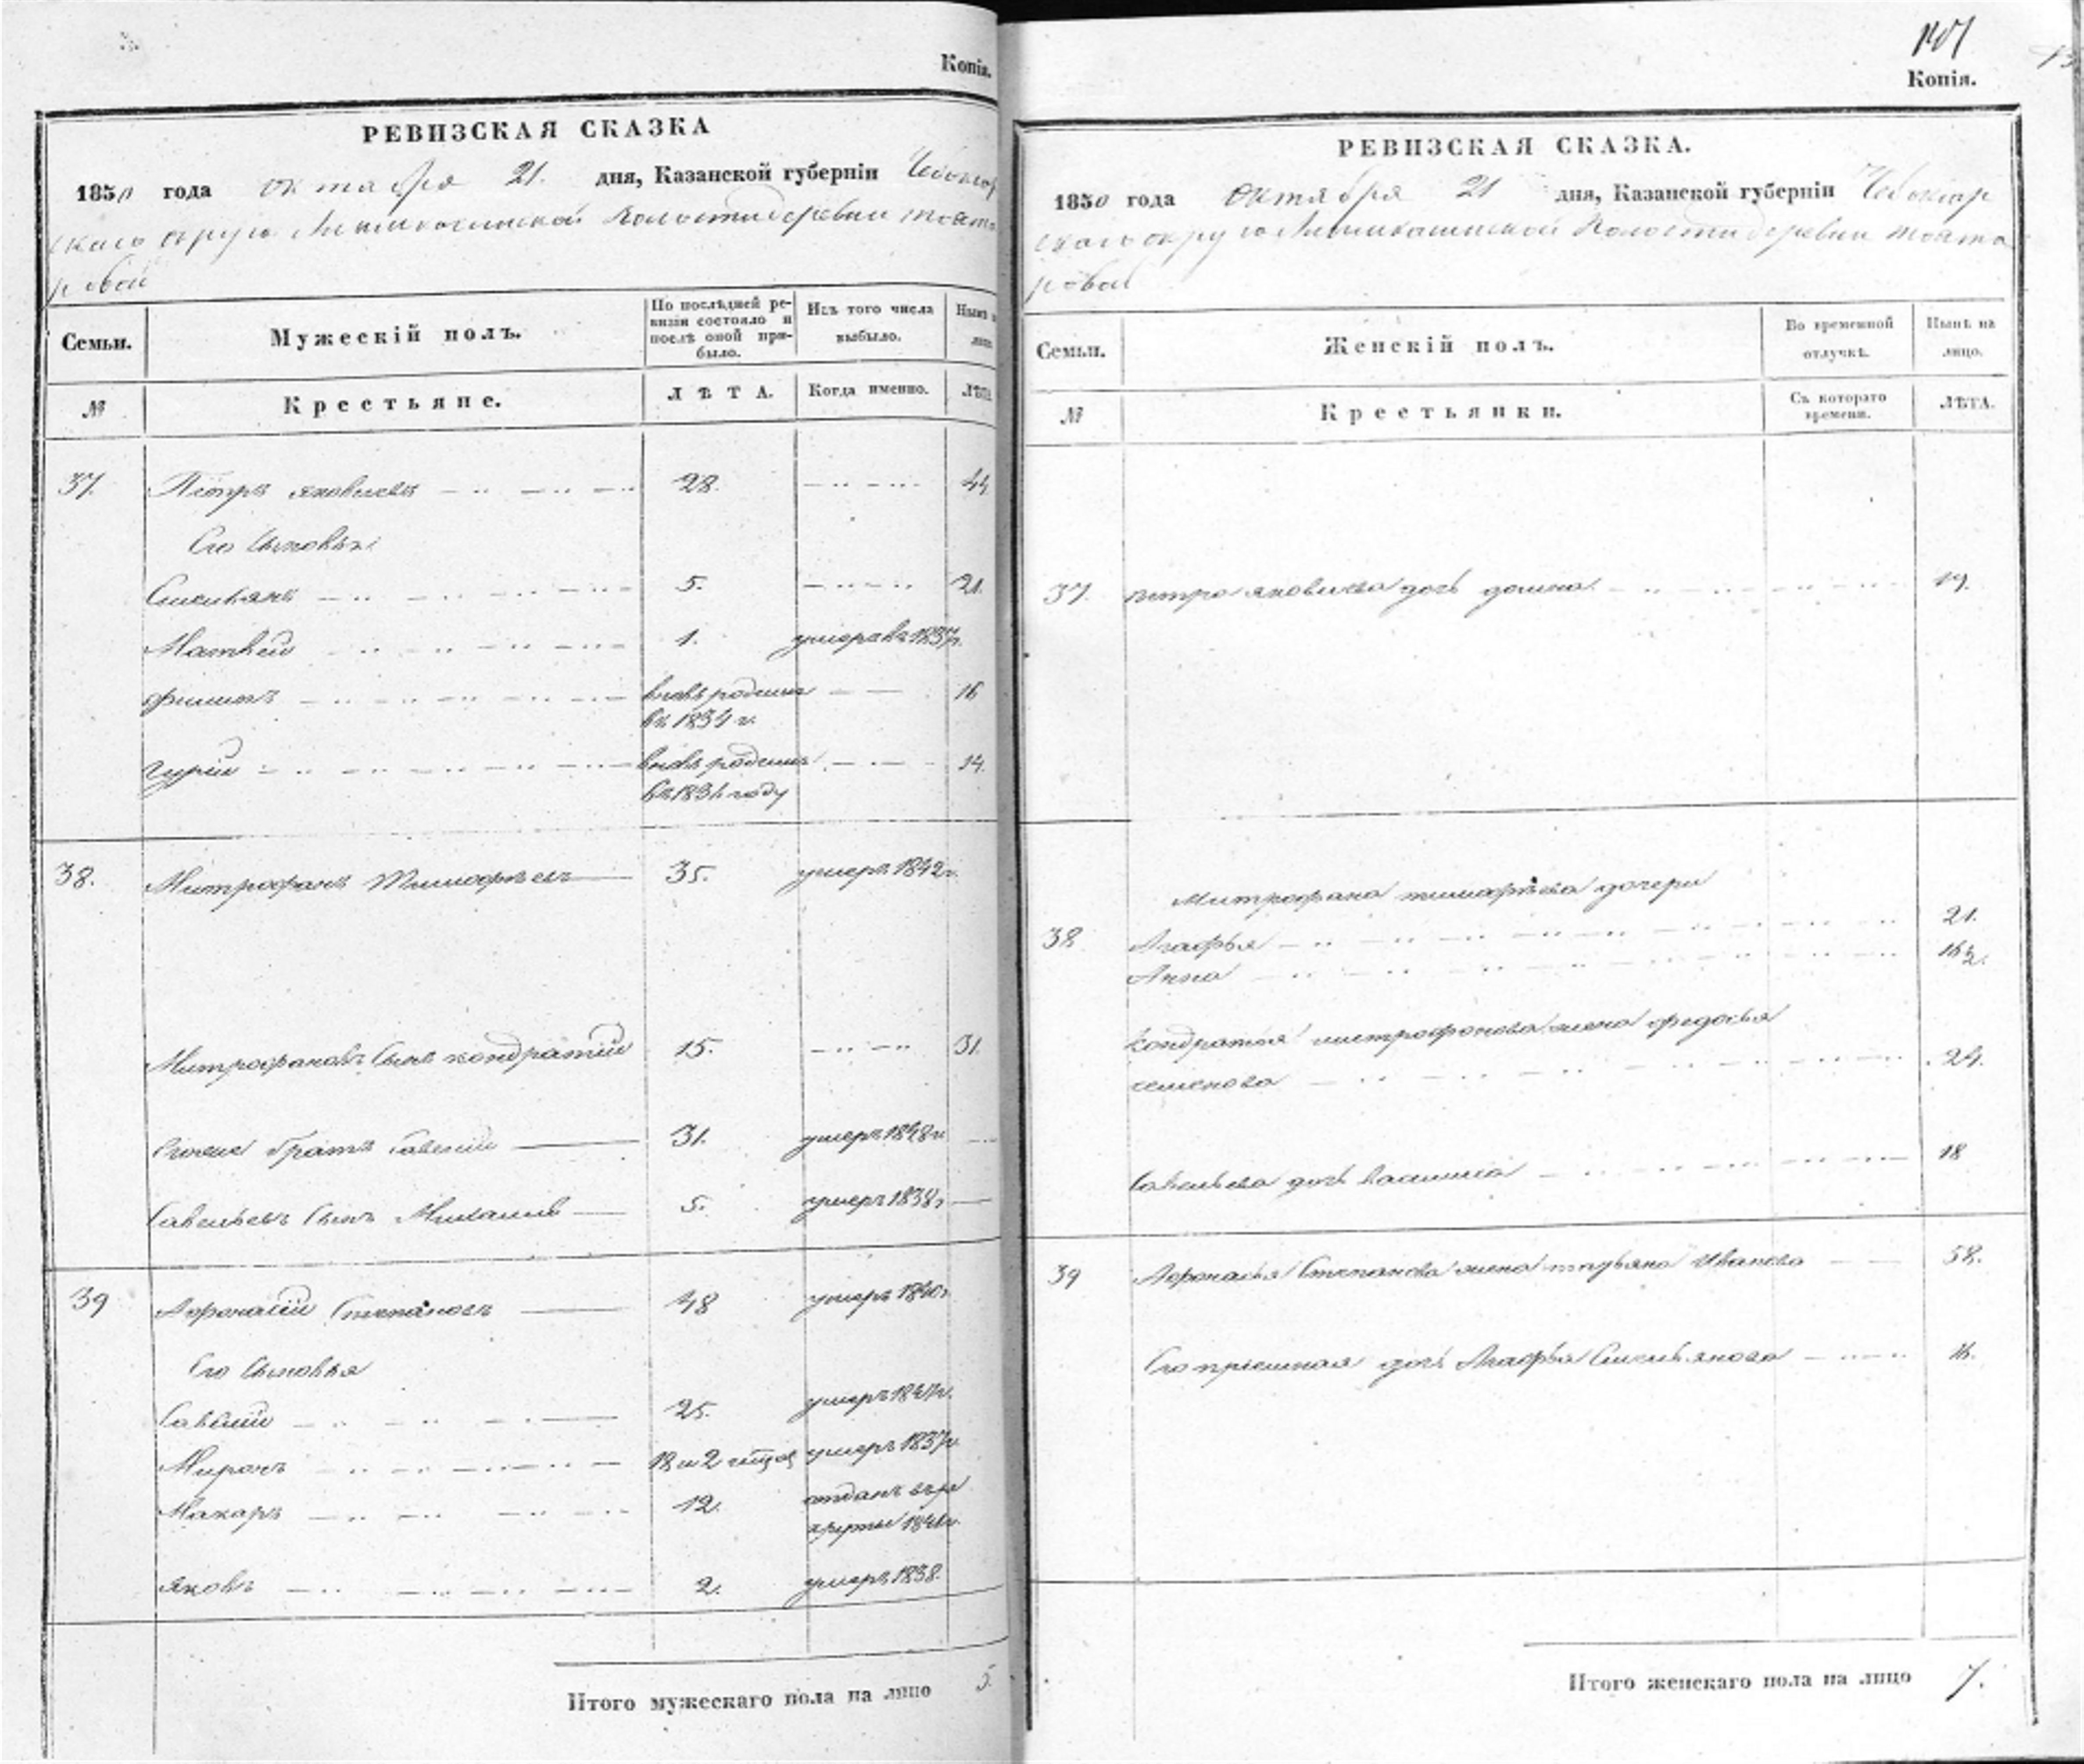 Копія.
РЕВИЗСКАЯ СКАЗКА
1850 года октября 21. дня, Казанской губерніи Чебоксар
скаго округа волости деревни
ровой
Семьи. Мужескій полъ. По послѣдней ре-визіи состояло и послѣ оной при-было. Изъ того числа выбыло. Нынѣ
№ Крестьяне. ЛѢТА. Когда именно. ЛѢТА
37. Петръ Яковлевъ 28. 44
Его сыновья:
Емельянъ 5. 21.
Матвей 1. умеръ въ 1837г.
Филипъ вновь родился 16
въ 1834 г.
Гурій вновь родился 14.
въ 183 году
38. Митрофанъ Тимофѣевъ 35. умеръ 1842г.
Митрофановъ сынъ Кондратій 15. 31.
братъ Савелій 31. умеръ 1848г
Савельевъ сынъ Михаилъ 5. умеръ 1838г
39 Афонасій Степановъ 48 умеръ 1840г
Его сыновья
Савелій 25. умеръ 1847г.
Миронъ 18 и 2 умеръ 1837г.
Макаръ 12. отданъ въ ре
круты 184 г.
Яковъ 2. умеръ 1838.
Итого мужескаго пола на лицо 5.
Копія.
РЕВИЗСКАЯ СКАЗКА.
1850 года октября 21 дня, Казанской губерніи Чебоксар
скаго округа волости деревни
ровой
Семьи. Женскій полъ. Во временной отлучкѣ. Нынѣ на лицо.
№ Крестьянки. Съ котораго времени. ЛѢТА.
37. Петра Яковлева дочь 19.
Митрофана Тимофѣева дочери
38 Агафья 21.
Анна 16½.
Кондратья Митрофанова жена Федосья
Семенова 24.
Савельева дочь Василиса 18
39 Афонасья Степанова жена Татьяна Иванова 58.
Его пріемная дочь Агафья Емельянова 16.
Итого женскаго пола на лицо 7.